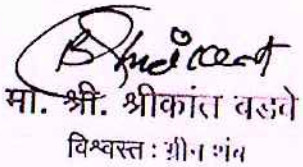 मा. श्री. श्रीकांत वडवे
विश्वस्त : ग्रीन थंब